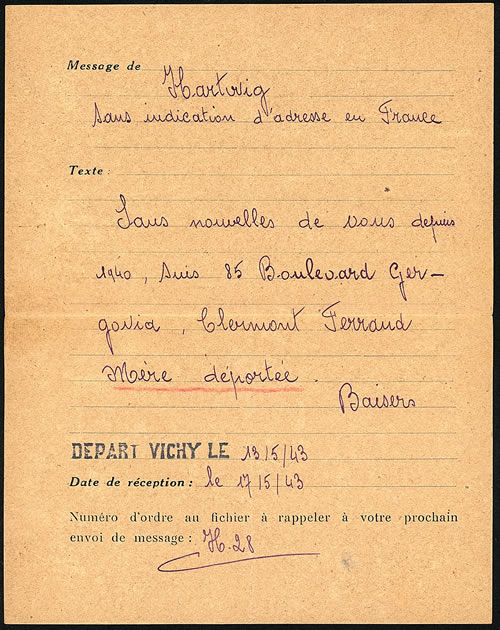 Message de Hartwig
sans indication d'adresse en France
Texte :
Sans nouvelles de vous depuis
1940, suis 85 Boulevard Ger-
govia, Clermont Ferrand
Mère déportée.
Baisers
DEPART VICHY LE 13/5/43
Date de réception : le 17/5/43
Numéro d'ordre au fichier à rappeler à votre prochain
envoi de message : H.28